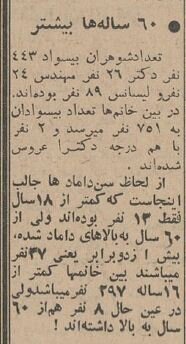 ۶۰ ساله‌ها بیشتر
تعداد شوهران بیسواد ۴۴۳
نفر دکتر ۲۶ نفر مهندس ۲۴
نفر و لیسانس ۸۹ نفر بوده‌اند.
در بین خانم‌ها تعداد بیسوادان
به ۷۵۱ نفر میرسد و ۲ نفر
با هم درجه دکترا عروس
شده‌اند.
از لحاظ سن داماد ها جالب
اینجاست که کمتر از ۱۸ سال
فقط ۱۳ نفر بوده‌اند ولی از
۶۰ سال به بالاهای داماد شده،
بیش از دوبرابر یعنی ۳۷ نفر
میباشند بین خانمها کمتر از
۱۶ ساله ۲۹۷ نفر میباشد ولی
در عین حال ۸ نفر هم از ۶۰
سال به بالا داشته‌اند !